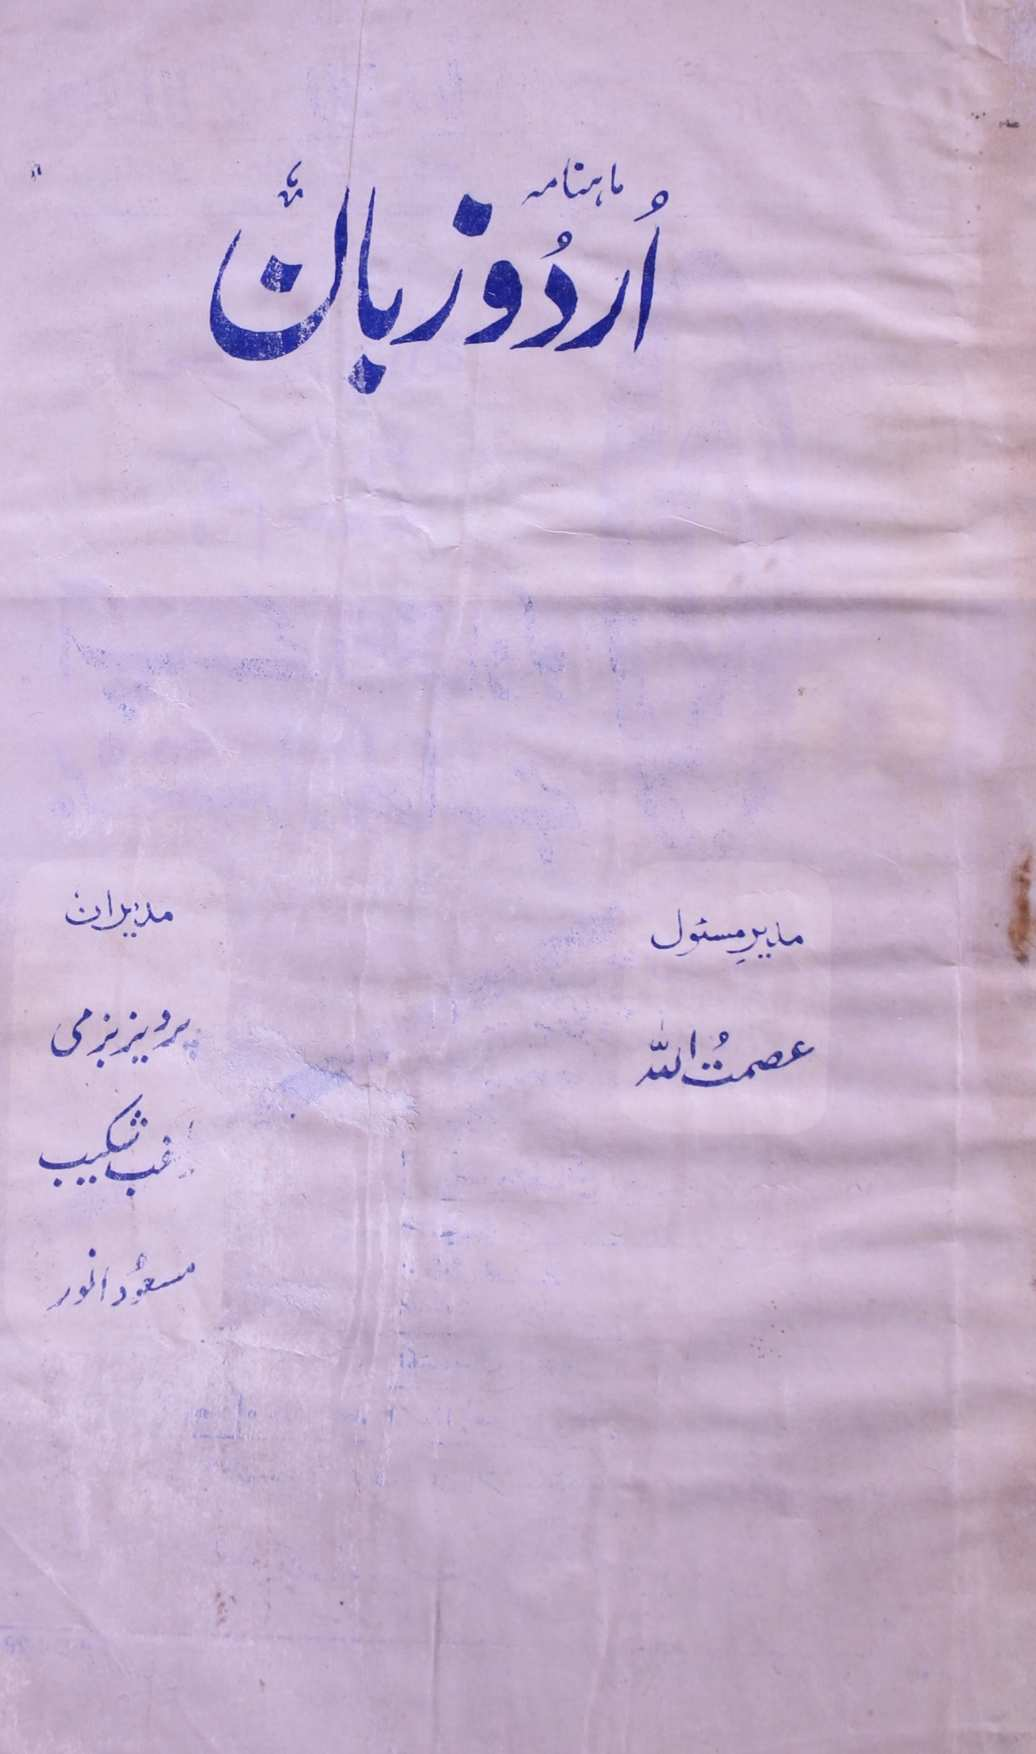 ماہنامہ
اُردُو زبان
مدیرِ مسئول
عصمتُ اللّٰہ
مدیران
پرویز بزمی
راغب شکیب
مسعُود انور